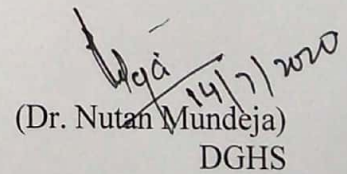 14/7/2020
(Dr. Nutan Mundeja)
DGHS